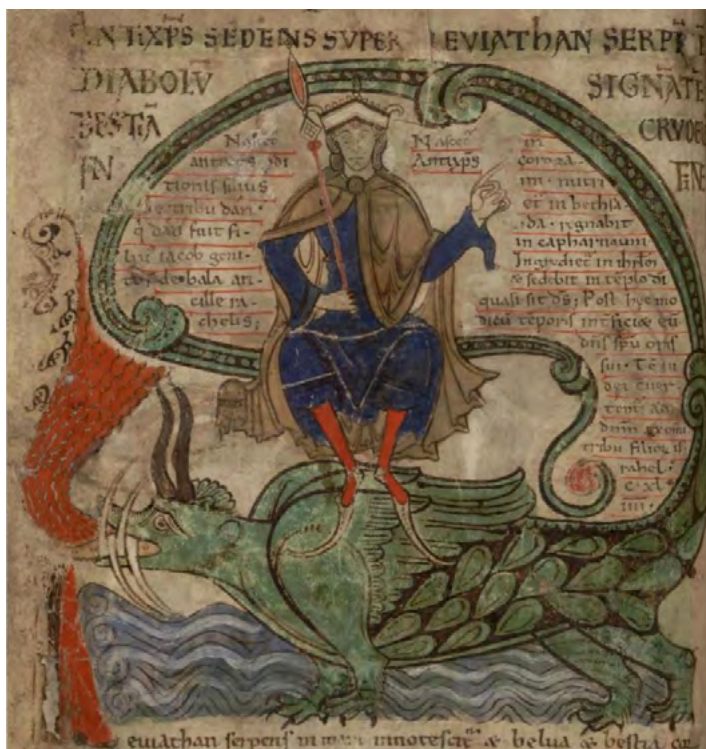 ANTIXP̄S SEDENS SVPER LEVIATHAN SERPE
DIABOLV̄ SIGNANTE
BESTIĀ CRVDEL
IN FINE
Nascet
antixp̄s p̄di
tionis filius
de tribu dan.
q̄ dan fuit fi
lius iacob geni
tus de bala an
cille ra
chelis;
Nascet
Antixp̄s
in
coroza
im. nutri
et in bethsa
ida. regnabit
in capharnaum.
Ingrediet in ihrl̄m
& sedebit in tēplo dī
quasi sit ds̄; Post hec mo
dicū tēporis interficiæ eū
dn̄s spū oris
sui. Tē iu
dei cuer
tent ad
dnm̄ ex omī
tribu filior isl
rahel.
c. xl.
iiii.
eviathan serpens in mari innotescit & belua & bestia